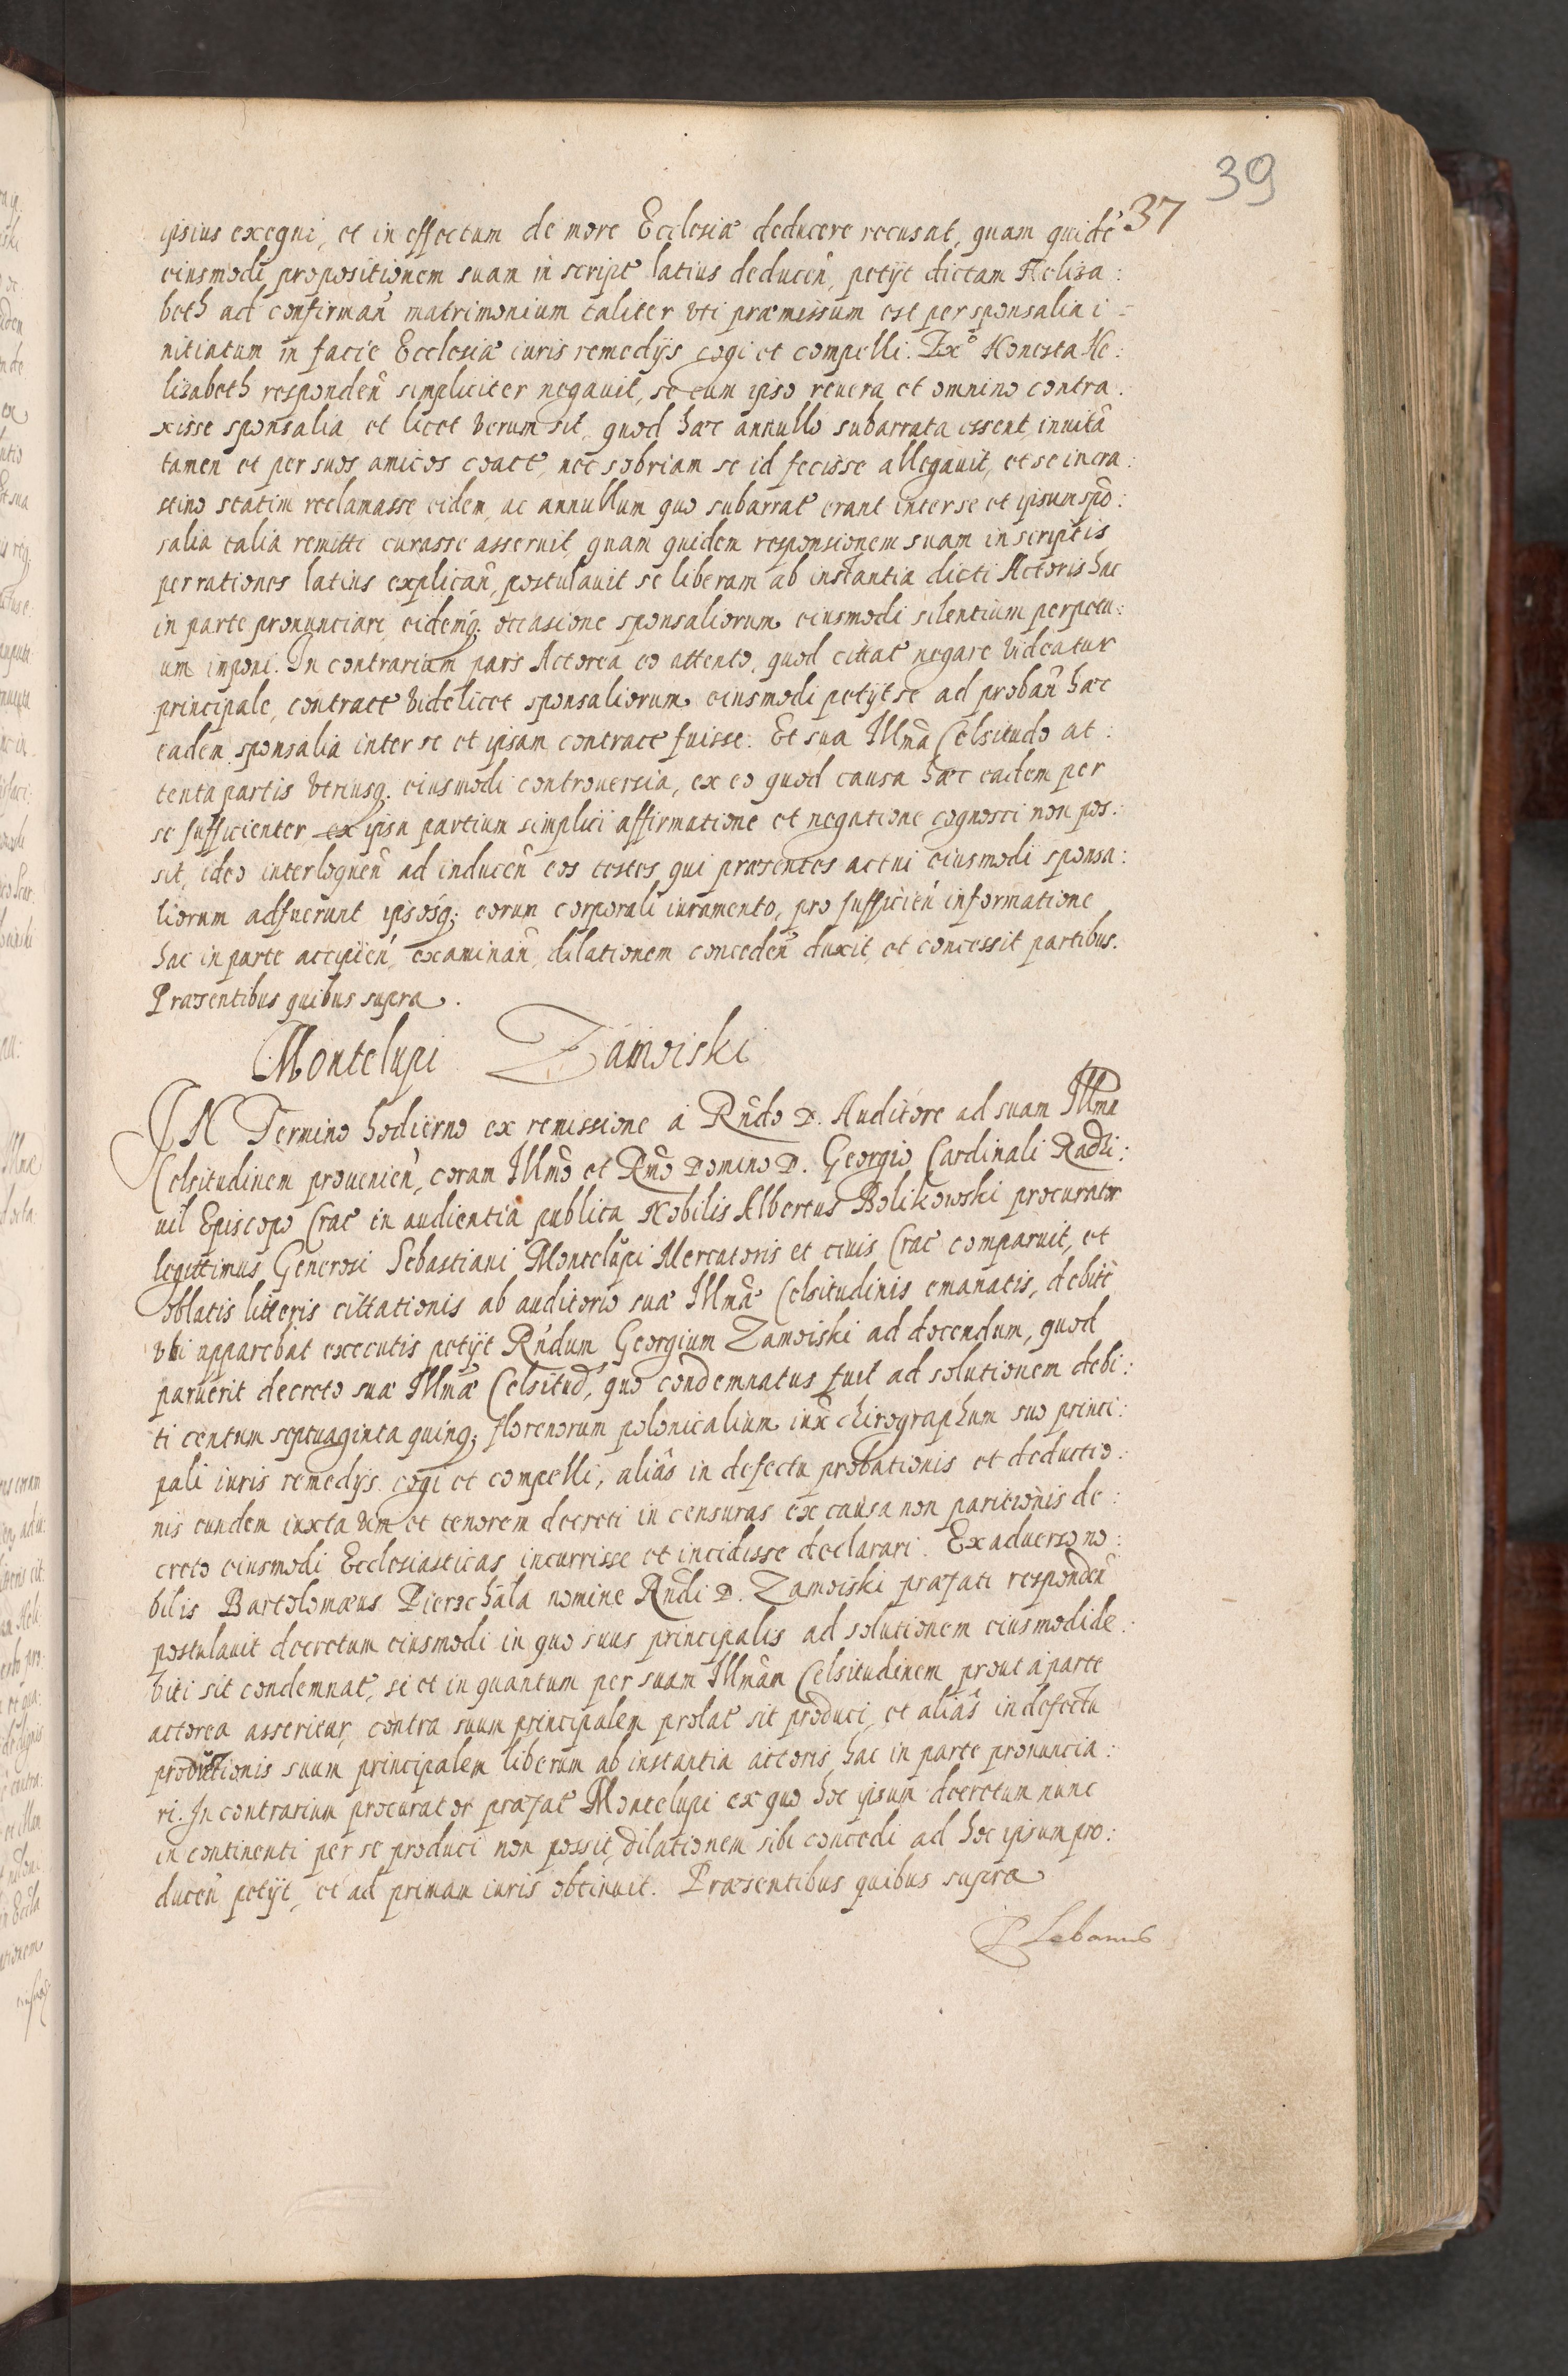 39
37
ipsius exequi, et in effectum de more Ecclesiæ deducere recusat, quam quidē
eiusmodi propositionem suam in script̃ latius deducen̄, petijt dictam Heliza:
beth ad confirman̄ matrimonium taliter vti præmissum est per sponsalia i=
nitiatum in facie Ecclesiæ iuris remedijs cogi et compelli. Honesta He:
lizabeth responden̄ simpliciter negauit, se cum ipso reuera et omnino contra:
xisse sponsalia et licet verum sit, quod hæc annullo subarrata essent, inuitā
tamen et per suos amicos coact̃, nec sobriam se id fecisse allegauit, et se in cra:
stino statim reclamasse eidem, ac annullum quo subarrat̃ erant inter se et ipsum spō:
salia talia remitti curasse asseruit, quam quidem responsionem suam in scriptis
per rationes latius explican̄, postulauit se liberam ab instantia dicti Actoris hac
in parte pronunciari, eidemq; occasione sponsaliorum eiusmodi silentium perpetu:
um imponi. In contrarium pars Actorea eo attento, quod cittat̃ negare videatur
principale, contract̃ videlicet sponsaliorum eiusmodi petijt se ad proban̄ hæc
eadem sponsalia inter se et ipsam contract̃ fuisse. Et sua Illmā Celsitudo at:
tenta partis vtriusq; eiusmodi controuersia, ex eo quod causa hæc eadem per
se sufficienter ex ipsa partium simplici affirmatione et negatione cognosci non pos:
sit, ideo interloquen̄ ad inducen̄ eos testes qui præsentes actui eiusmodi sponsa:
liorum adfuerunt ipsosq; eorum corporali iuramento, pro sufficien̄ informatione
hac in parte accipien̄, examinan̄, dilationem conceden̄ duxit, et concessit partibus.
Præsentibus quibus supra.
Montelupi Zamoiski
IN Termino hodierno ex remissione a Rñdo D. Auditore ad suam Illmā
Celsitudinem prouenien̄, coram Illmō et Rmō Domino D. Georgio Cardinali Radzi:
uil Episcopo Crac̃ in audientia publica Nobilis Albertus Bolikowski procurator
legittimus Generosi Sebastiani Montelupi Mercatoris et ciuis Crac̃ comparuit, et
oblatis litteris cittationis ab auditorio suæ Illmæ Celsitudinis emanatis, debitè
vbi apparebat executis petijt Rñdum Georgium Zamoiski ad docendum, quod
paruerit decreto suæ Illmæ Celsitud̃, quo condemnatus fuit ad solutionem debi:
ti centum septuaginta quinq; florenorum polonicalium iux̃ chirographum suo princi:
pali iuris remedijs cogi et compelli, aliâs in defectu probationis et deductio:
nis eundem iuxta vim et tenorem decreti in censuras ex causa non paritionis de:
creto eiusmodi Ecclesiasticas incurrisse et incidisse declarari. Ex aduerso no:
bilis Bartolomæus Pierzchała nomine Rñdi D. Zamoiski præfati responden̄
postulauit decretum eiusmodi in quo suus principalis ad solutionem eiusmodi de:
biti sit condemnat̃, si et in quantum per suam Illmām Celsitudinem prout à parte
actorea asseritur, contra suum principalem prolat̃ sit produci, et aliâs in defectu
productionis suum principalem liberum ab instantia actoris hac in parte pronuncia:
ri. In contrarium procurator præfat̃ Montelupi ex quo hoc ipsum decretum nunc
in continenti per se produci non possit, dilationem sibi concedi ad hoc ipsum pro:
ducen̄ petijt, et ad primam iuris obtinuit. Præsentibus quibus supra